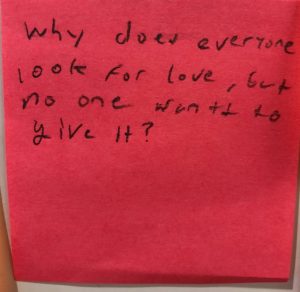 Why does everyone
look for love, but
no one wants to
give it?